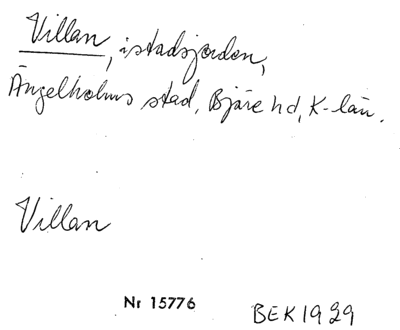 Villan, i stadsjorden,
Ängelholms stad, Bjäre hd, K-län.
Villan
Nr 15776
BEK 1929